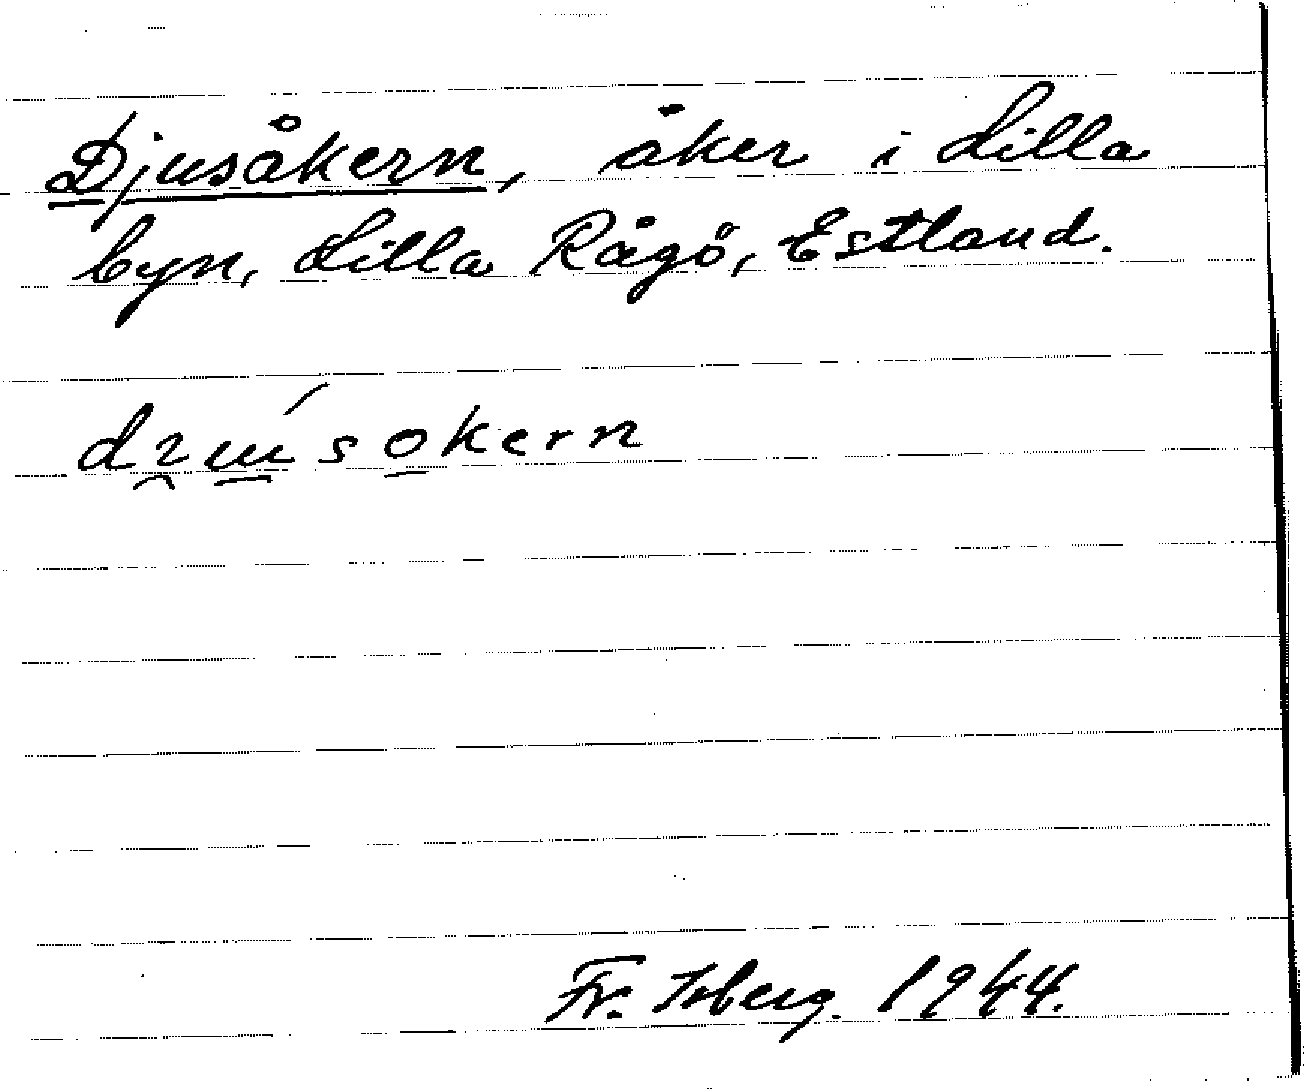 Djusåkern, åker i Lilla
byn, Lilla Rågö, Estland.
Fr. Isberg. 1944.